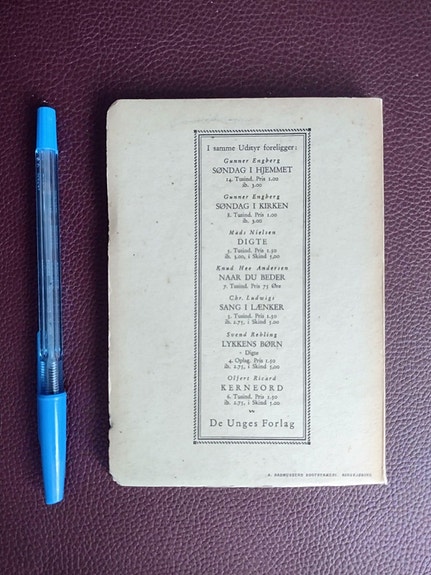 I samme Udstyr foreligger:
Gunner Engberg
SØNDAG I HJEMMET
14. Tusind. Pris 1.00
ib. 3.00
Gunner Engberg
SØNDAG I KIRKEN
8. Tusind. Pris 1.00
ib. 3.00
Mads Nielsen
DIGTE
5. Tusind. Pris 1.50
ib. 3.00, i Skind 5,00
Knud Hee Andersen
NAAR DU BEDER
7. Tusind. Pris 75 Øre
Chr. Ludwigs
SANG I LÆNKER
3. Tusind. Pris 1.50
ib. 2.75, i Skind 5.00
Svend Rebling
LYKKENS BØRN
- Digte
4. Oplag. Pris 1.50
ib. 2.75, i Skind 5,00
Olfert Ricard
KERNEORD
6. Tusind. Pris 1.50
ib. 2.75, i Skind 5,00
De Unges Forlag
A. RASMUSSENS BOGTRYKKERI. RINGKØBING